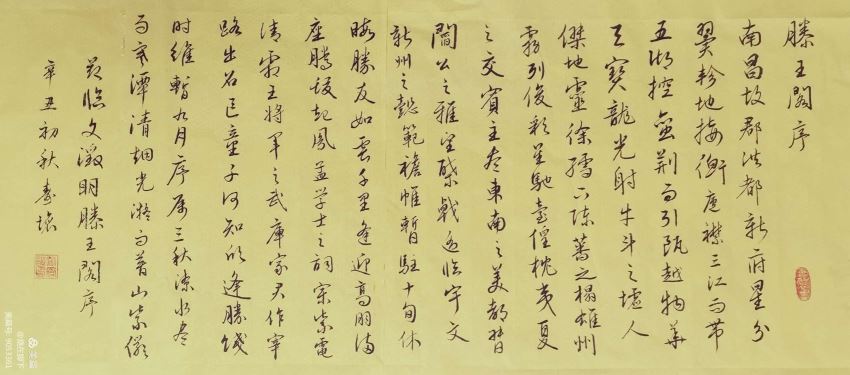 滕王閣序
南昌故郡洪都新府星分
翼軫地接衡廬襟三江而帶
五湖控蠻荆而引甌越物華
天寶龍光射牛斗之墟人
傑地靈徐孺下陳蕃之榻雄州
霧列俊彩星馳臺隍枕夷夏
之交賓主盡東南之美都督
閻公之雅望棨戟遥临宇文
新州之懿範襜帷暫駐十旬休
暇勝友如雲千里逢迎高朋满
座騰蛟起鳳孟学士之詞宗紫電
清霜王將軍之武庫家君作宰
路出名區童子何知躬逢勝餞
时維暫九月序属三秋潦水盡
而寒潭清烟光凝而暮山紫儼
临文徵明滕王閣序
辛丑初秋
美篇号:9053361
美篇